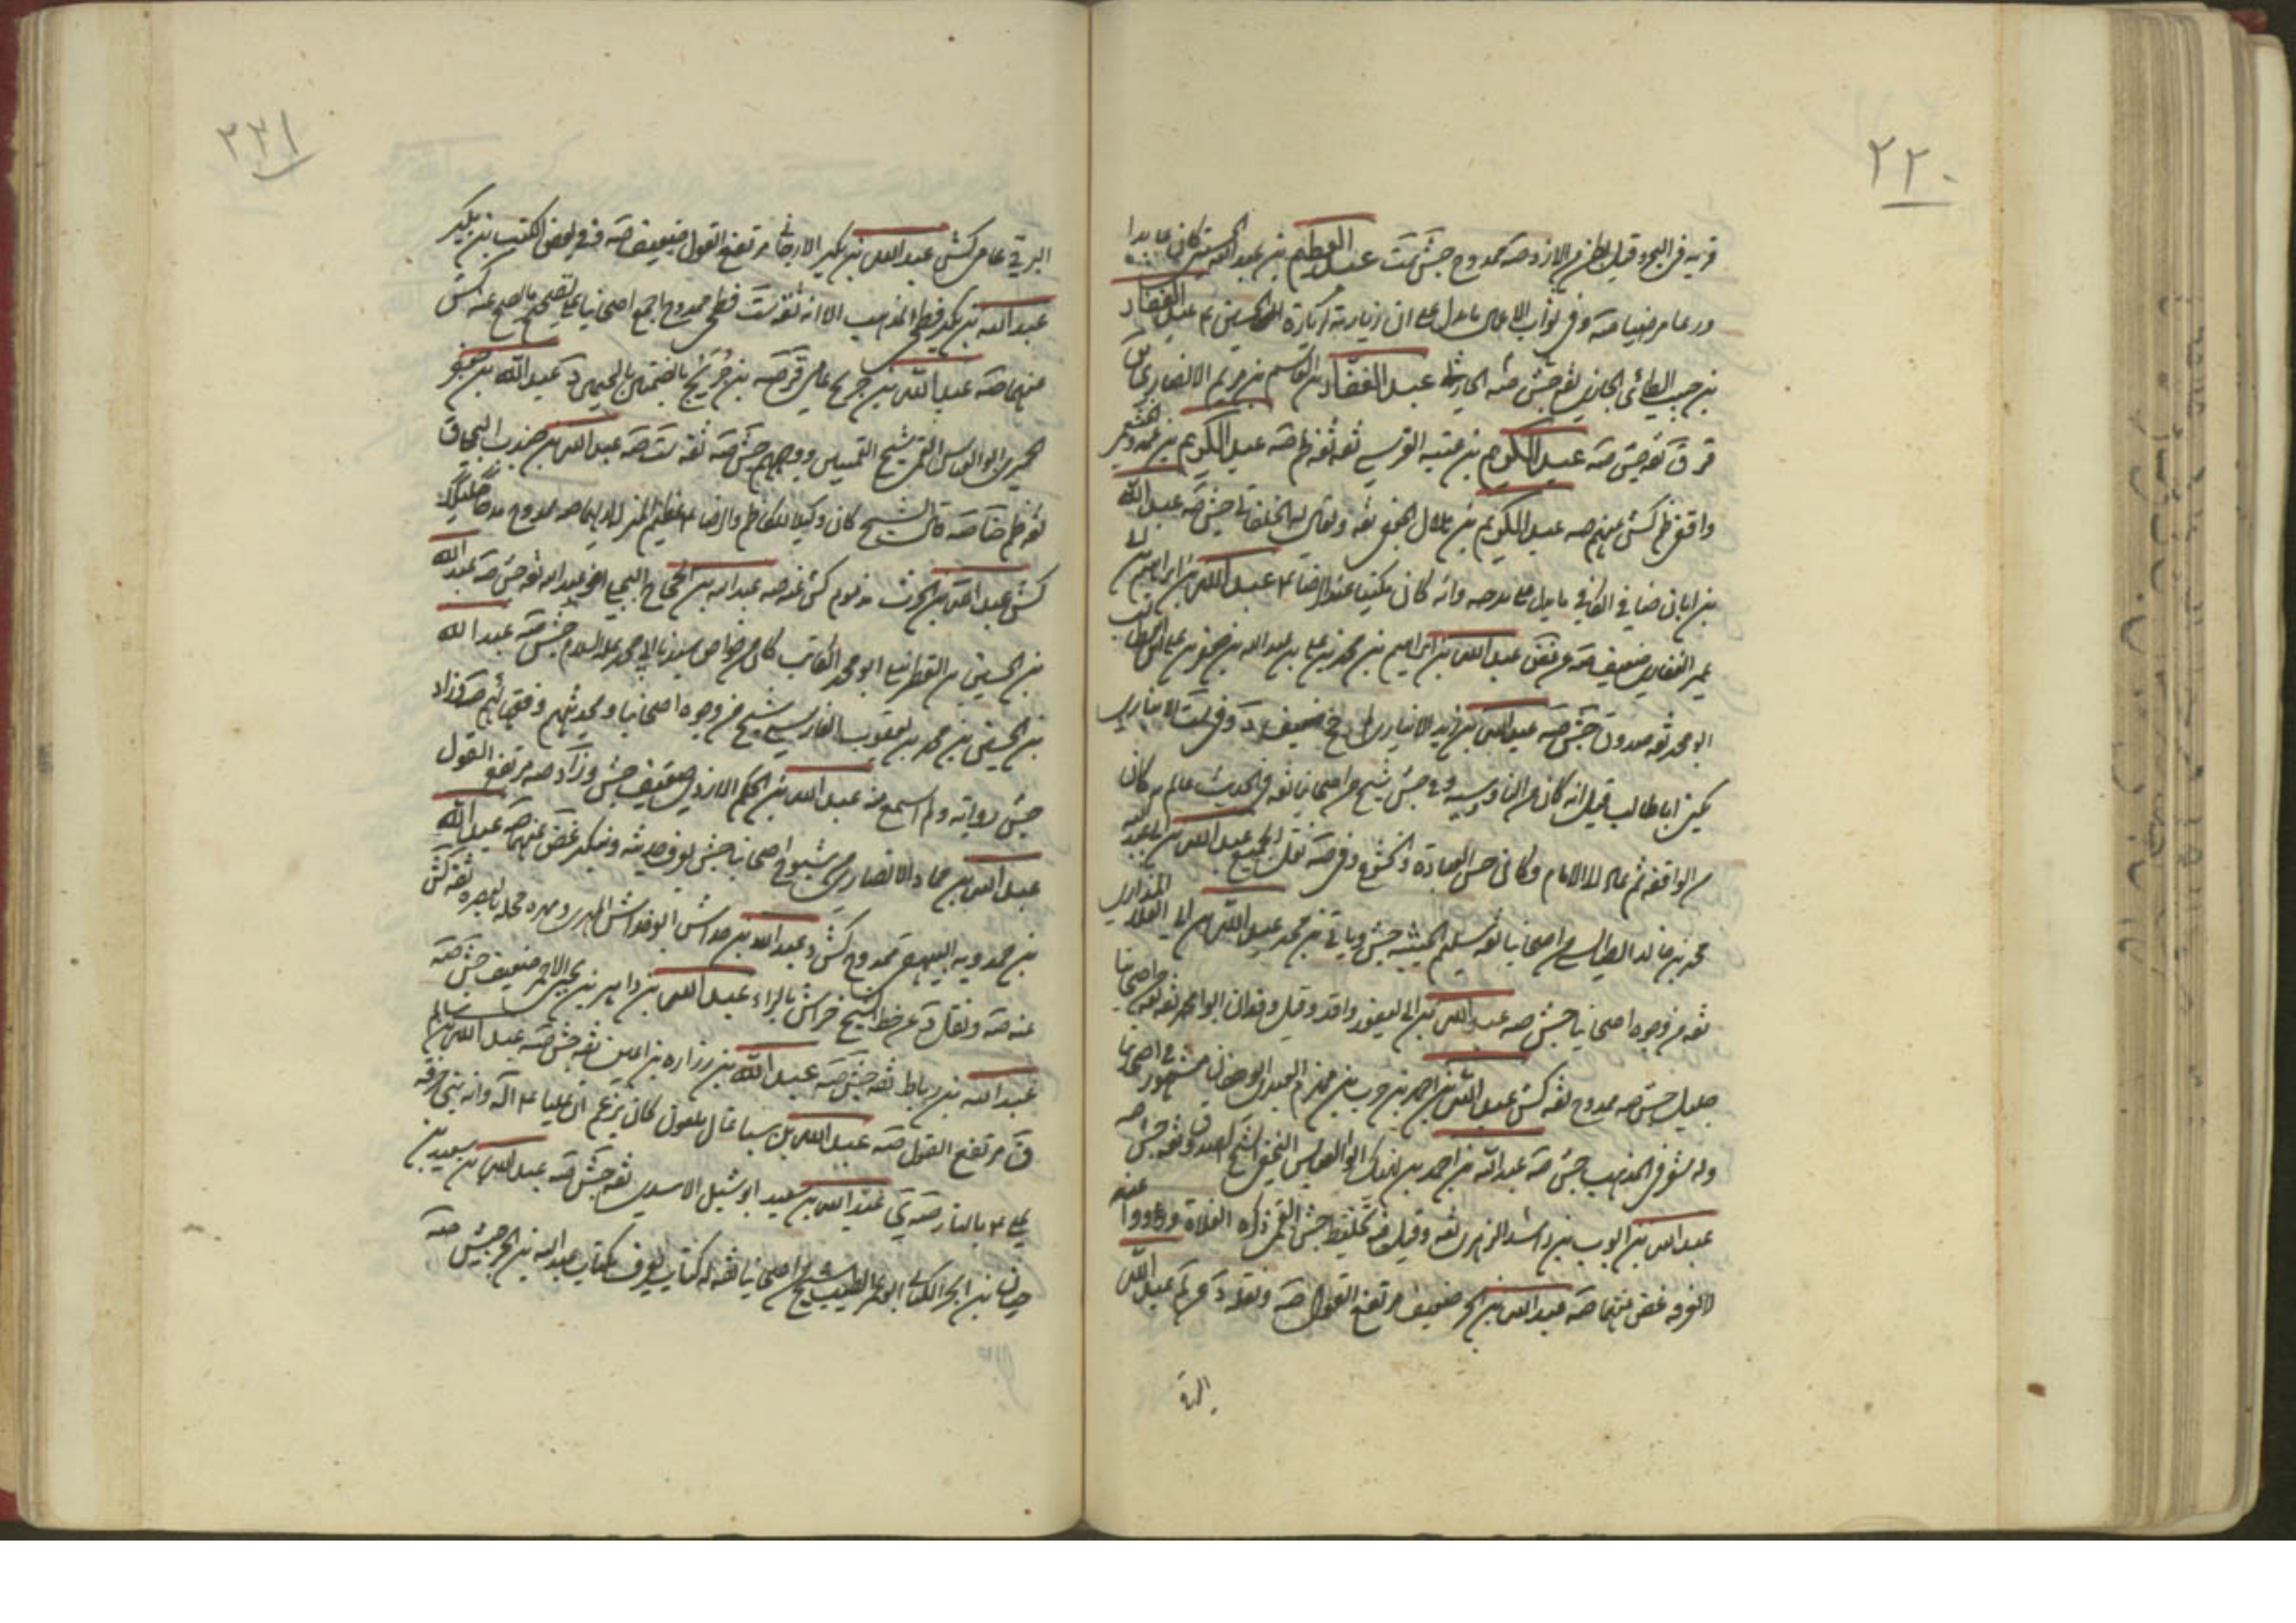 ٢٢٠
قريه في البحر وقيل بطن من الازد صه ممدوح جش ست عبد العظيم بن عبد الله الحسني كان عابدا
ورعا مرضيا صه وفي ثواب الاعمال ما يدل على ان زيارته كزيارة الحسين ع عبد الغفار
بن حبيب الطائي الجازي ثقه جش صه الحارثي عبد الغفار بن القاسم بن مريم الانصاري
قر ق ثقه جش صه عبد الكريم بن عتبه القرشي ثقه ثقه ظم صه عبد الكريم بن عمرو الخثعمي
واقفي ظم كش صه عبد الكريم بن هلال الجعفي ثقه ويقال له الخلقاني جش صه عبد الله
بن ابان ضا في الكافي ما يدل على مدحه وانه كان مكينا عند الرضا ع عبد الله بن ابراهيم بن ابي
عمير الغفاري ضعيف عبد الله بن ابراهيم بن محمد بن علي بن عبد الله بن جعفر بن ابي طالب
ابو محمد ثقه صدوق جش صه عبد الله بن ابي زيد الانباري ضعيف وفي ست الانباري
يكنى ابا طالب قيل انه كان من الناووسيه وفي جش شيخ من اصحابنا ثقه في الحديث عالم به كان
من الواقفه ثم عاد الى الامامه وكان حسن العباده والخشوع عبد الله بن ابي عبد الله
محمد بن خالد الطيالسي من اصحابنا ثقه سليم الجنبه جش وياتي بن محمد عبد الله بن ابي العلا المذاري
ثقه من وجوه اصحابنا جش صه عبد الله بن ابي يعفور واقد وقيل وقدان ابو محمد ثقه ثقه في اصحابنا
جليل جش صه ممدوح ثقه كش عبد الله بن احمد بن حرب بن مهزم العبدي ابو هفان مشهور في اصحابنا
وله شعر في المذهب جش صه عبد الله بن احمد بن نهيك ابو العباس النخعي الشيخ الصدوق ثقه جش صه
عبد الله بن ايوب بن راشد الزهري ثقه وقيل فيه تخليط جش القمي ذكره الغلاة ورووا عنه
لا نعرفه غض صه عبد الله بن بحر ضعيف مرتفع القول صه عبد الله
البرقي
٢٢١
البرقي عامي كش عبد الله بن بكير الارجاني مرتفع القول ضعيف صه وفي بعض الكتب بن بكير
عبد الله بن بكير فطحي المذهب الا انه ثقه ست فطحي ممدوح اجمع اصحابنا على تصحيح ما يصح عنه كش
صه عبد الله بن جريح عامي قر صه بن جريج بالضمتين بالجيمين د عبد الله بن جعفر
الحميري ابو العباس القمي شيخ القميين ووجههم جش صه ثقه ست صه عبد الله بن جندب البجلي ق
ثقه ظم ضا صه قال الشيخ كان وكيلا للكاظم والرضا ع عظيم المنزله لديهما صه ممدوح مدحا جليلا
كش عبد الله بن الحرث مذموم كش صه عبد الله بن الحجاج البجلي اخو عبد الرحمن ثقه جش صه عبد الله
بن الحسين بن القطربلي ابو محمد الكاتب كان من خواص سيدنا ابي محمد عليه السلام جش صه عبد الله
بن الحسين بن محمد بن يعقوب الفارسي شيخ من وجوه اصحابنا ومحدثيهم وفقهائهم صه وزاد
جش رواياته ولم اسمع منه عبد الله بن الحكم الارمني ضعيف جش وزاد صه مرتفع القول
عبد الله بن حماد الانصاري من شيوخ اصحابنا جش يعرف حديثه وينكر غض صه عبد الله
بن حمدويه البيهقي ممدوح كش د عبد الله بن خداش ابو خداش المهري ومهره محله بالبصره ثقه كش
عنه صه ونقل د عن خط الشيخ خراش بالراء عبد الله بن داهر بن يحيى الاحمري ضعيف جش صه
عبد الله بن رباط ثقه جش صه عبد الله بن زراره بن اعين ثقه جش صه عبد الله بن سالم
ق مرتفع القول صه عبد الله بن سبا غال ملعون كان يزعم ان عليا ع اله وانه نبي حرقه
علي ع بالنار صه عبد الله بن سعيد ابو شبل الاسدي ثقه جش صه عبد الله بن سعيد بن
حيان بن ابجر الكناني ابو عمر الطبيب شيخ من اصحابنا ثقه له كتاب يعرف بكتاب عبد الله بن ابجر جش صه